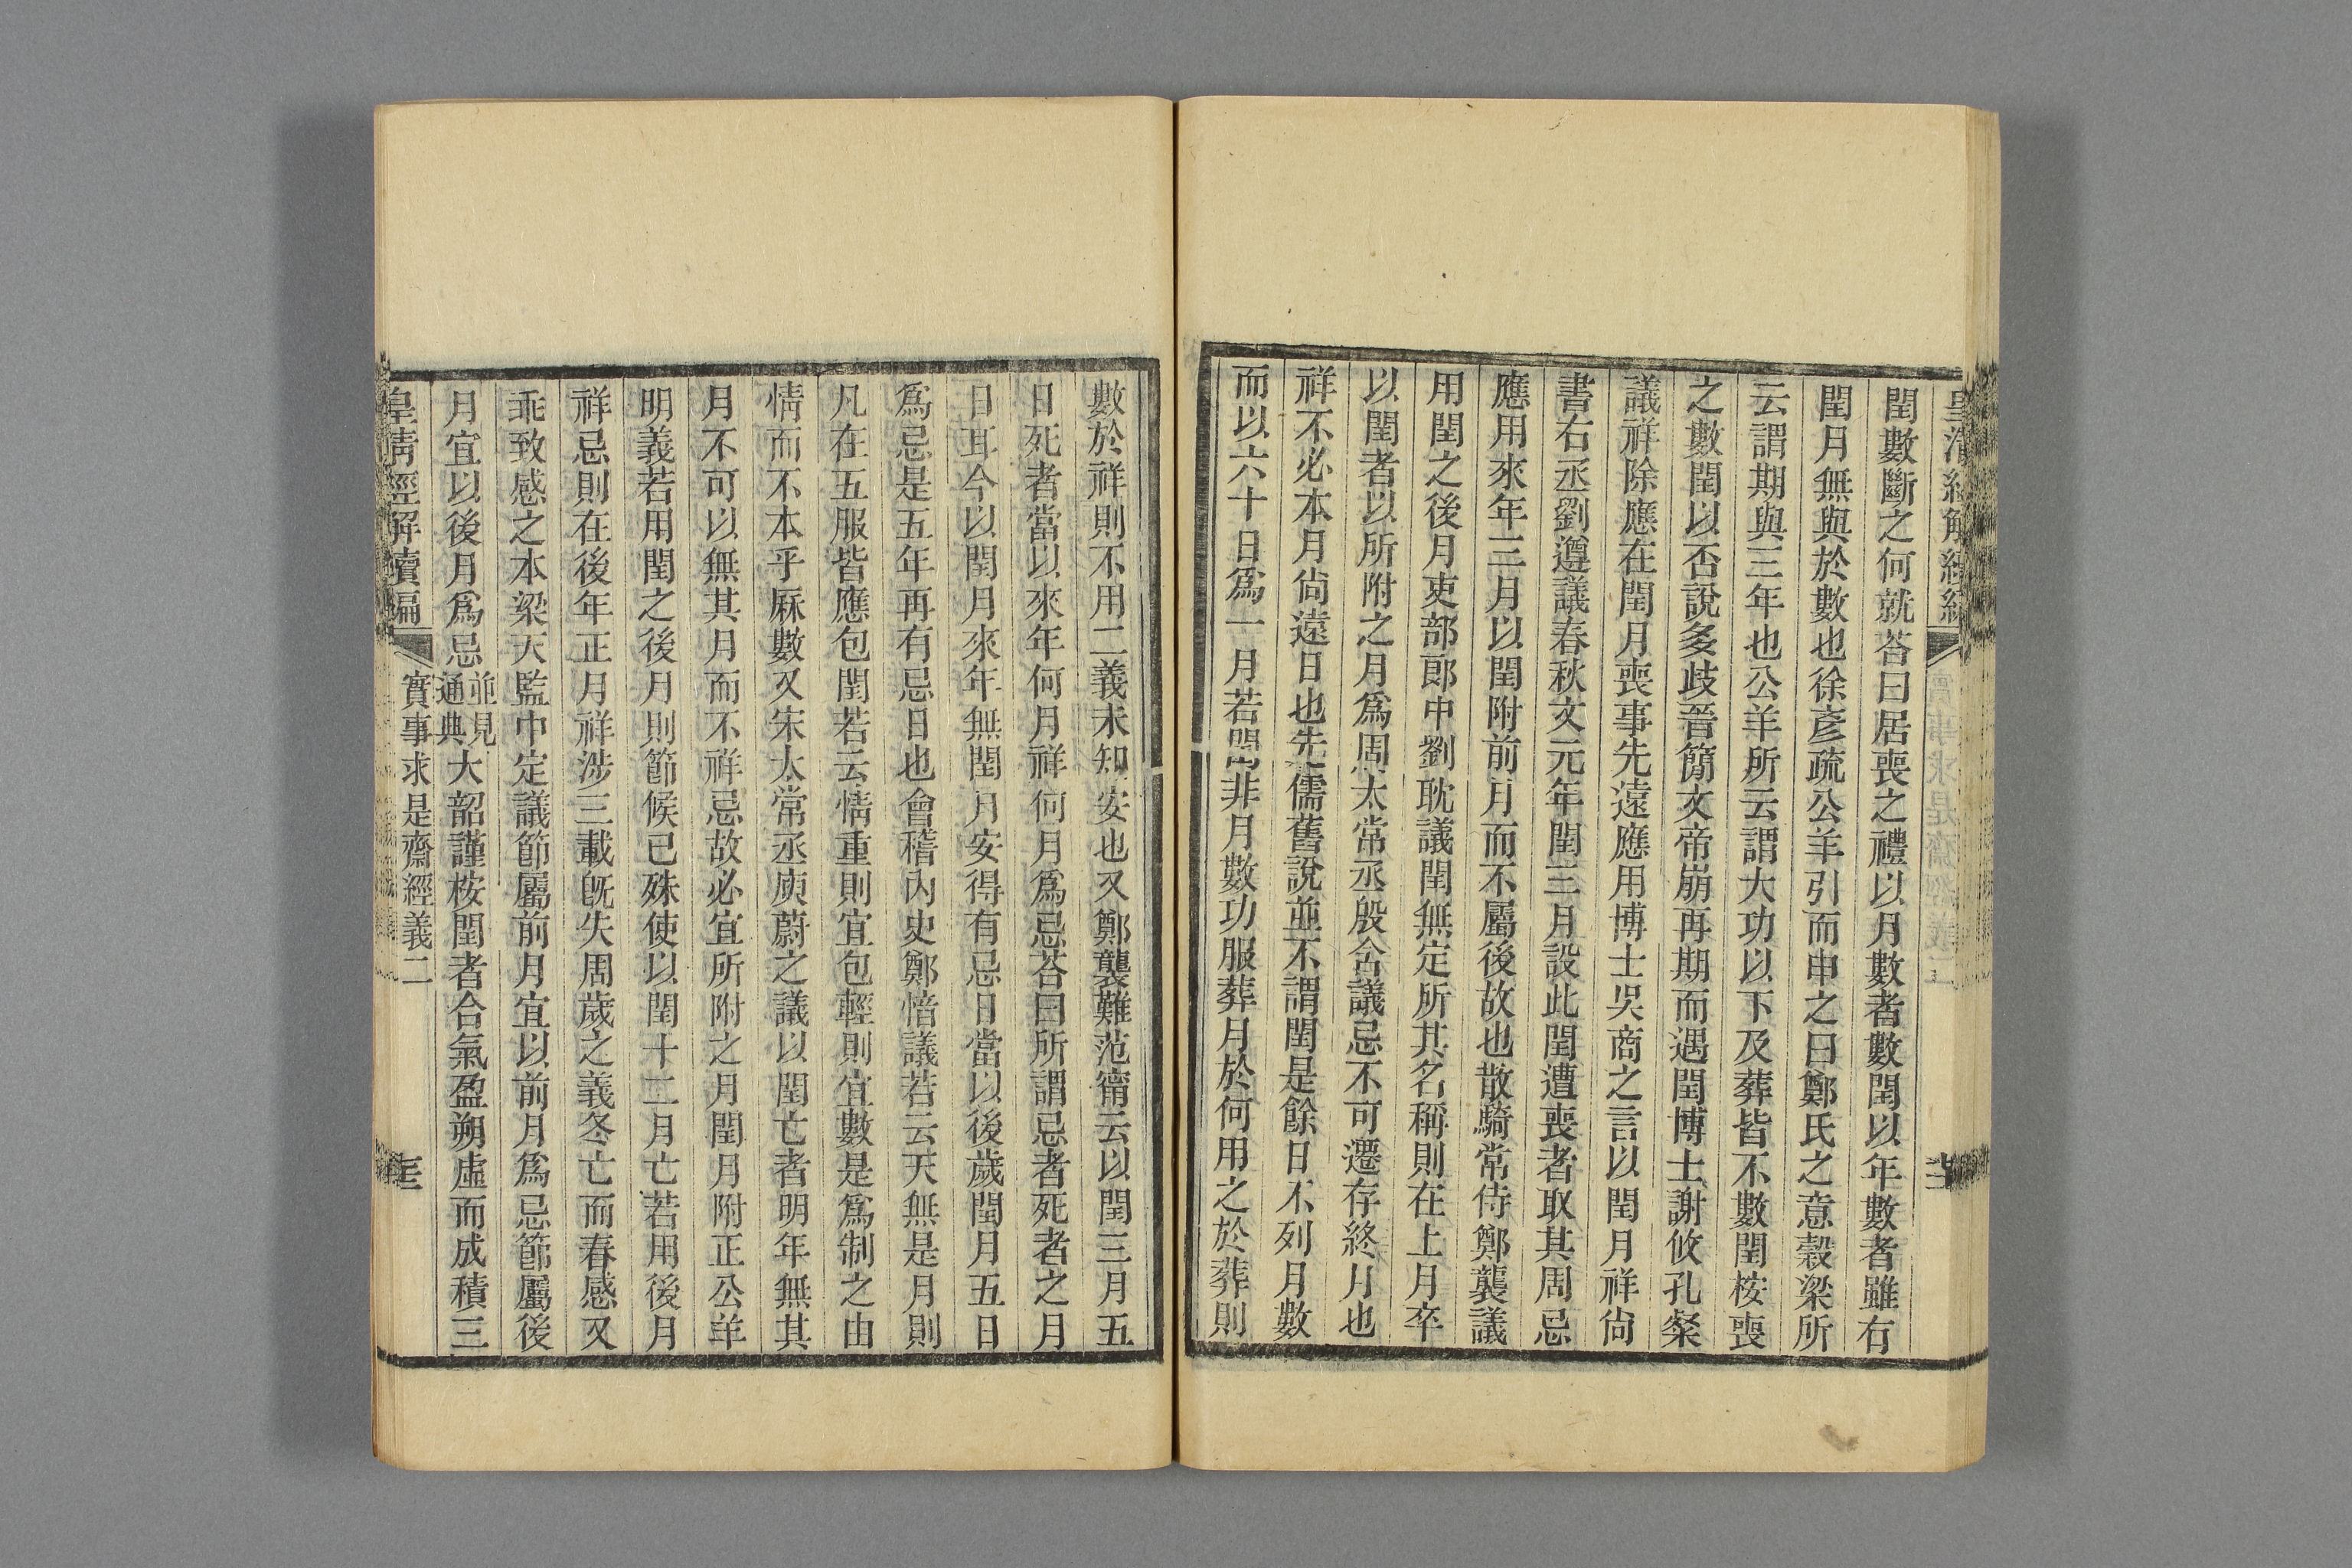 皇清經解續編
閏數斷之何就荅曰居喪之禮以月數者數閏以年數者雖有
閏月無與於數也徐彥疏公羊引而申之曰鄭氏之意穀梁所
云謂期與三年也公羊所云謂大功以下及葬皆不數閏桉喪
之數閏以否說多歧晉簡文帝崩再期而遇閏博士謝攸孔粲
議祥除應在閏月喪事先遠應用博士吳商之言以閏月祥尙
書右丞劉遵議春秋文元年閏三月設此閏遭喪者取其周忌
應用來年三月以閏附前月而不屬後故也散騎常侍鄭襲議
用閏之後月吏部郎中劉耽議閏無定所其名稱則在上月卒
以閏者以所附之月爲周太常丞殷合議忌不可遷存終月也
祥不必本月尙遠日也先儒舊說並不謂閏是餘日不列月數
而以六十日爲一月若閏非月數功服葬月於何用之於葬則
數於祥則不用二義未知安也又鄭襲難范甯云以閏三月五
日死者當以來年何月祥何月爲忌荅曰所謂忌者死者之月
日耳今以閏月來年無閏月安得有忌日當以後歲閏月五日
爲忌是五年再有忌日也會稽內史鄭愔議若云天無是月則
凡在五服皆應包閏若云情重則宜包輕則宜數是爲制之由
情而不本乎厤數又宋太常丞庾蔚之議以閏亡者明年無其
月不可以無其月而不祥忌故必宜所附之月閏月附正公羊
明義若用閏之後月則節候已殊使以閏十二月亡若用後月
祥忌則在後年正月祥涉三載旣失周歲之義冬亡而春感又
乖致感之本梁天監中定議節屬前月宜以前月爲忌節屬後
月宜以後月爲忌並見通典大韶謹桉閏者合氣盈朔虛而成積三
皇淸經解續編 實事求是齋經義二